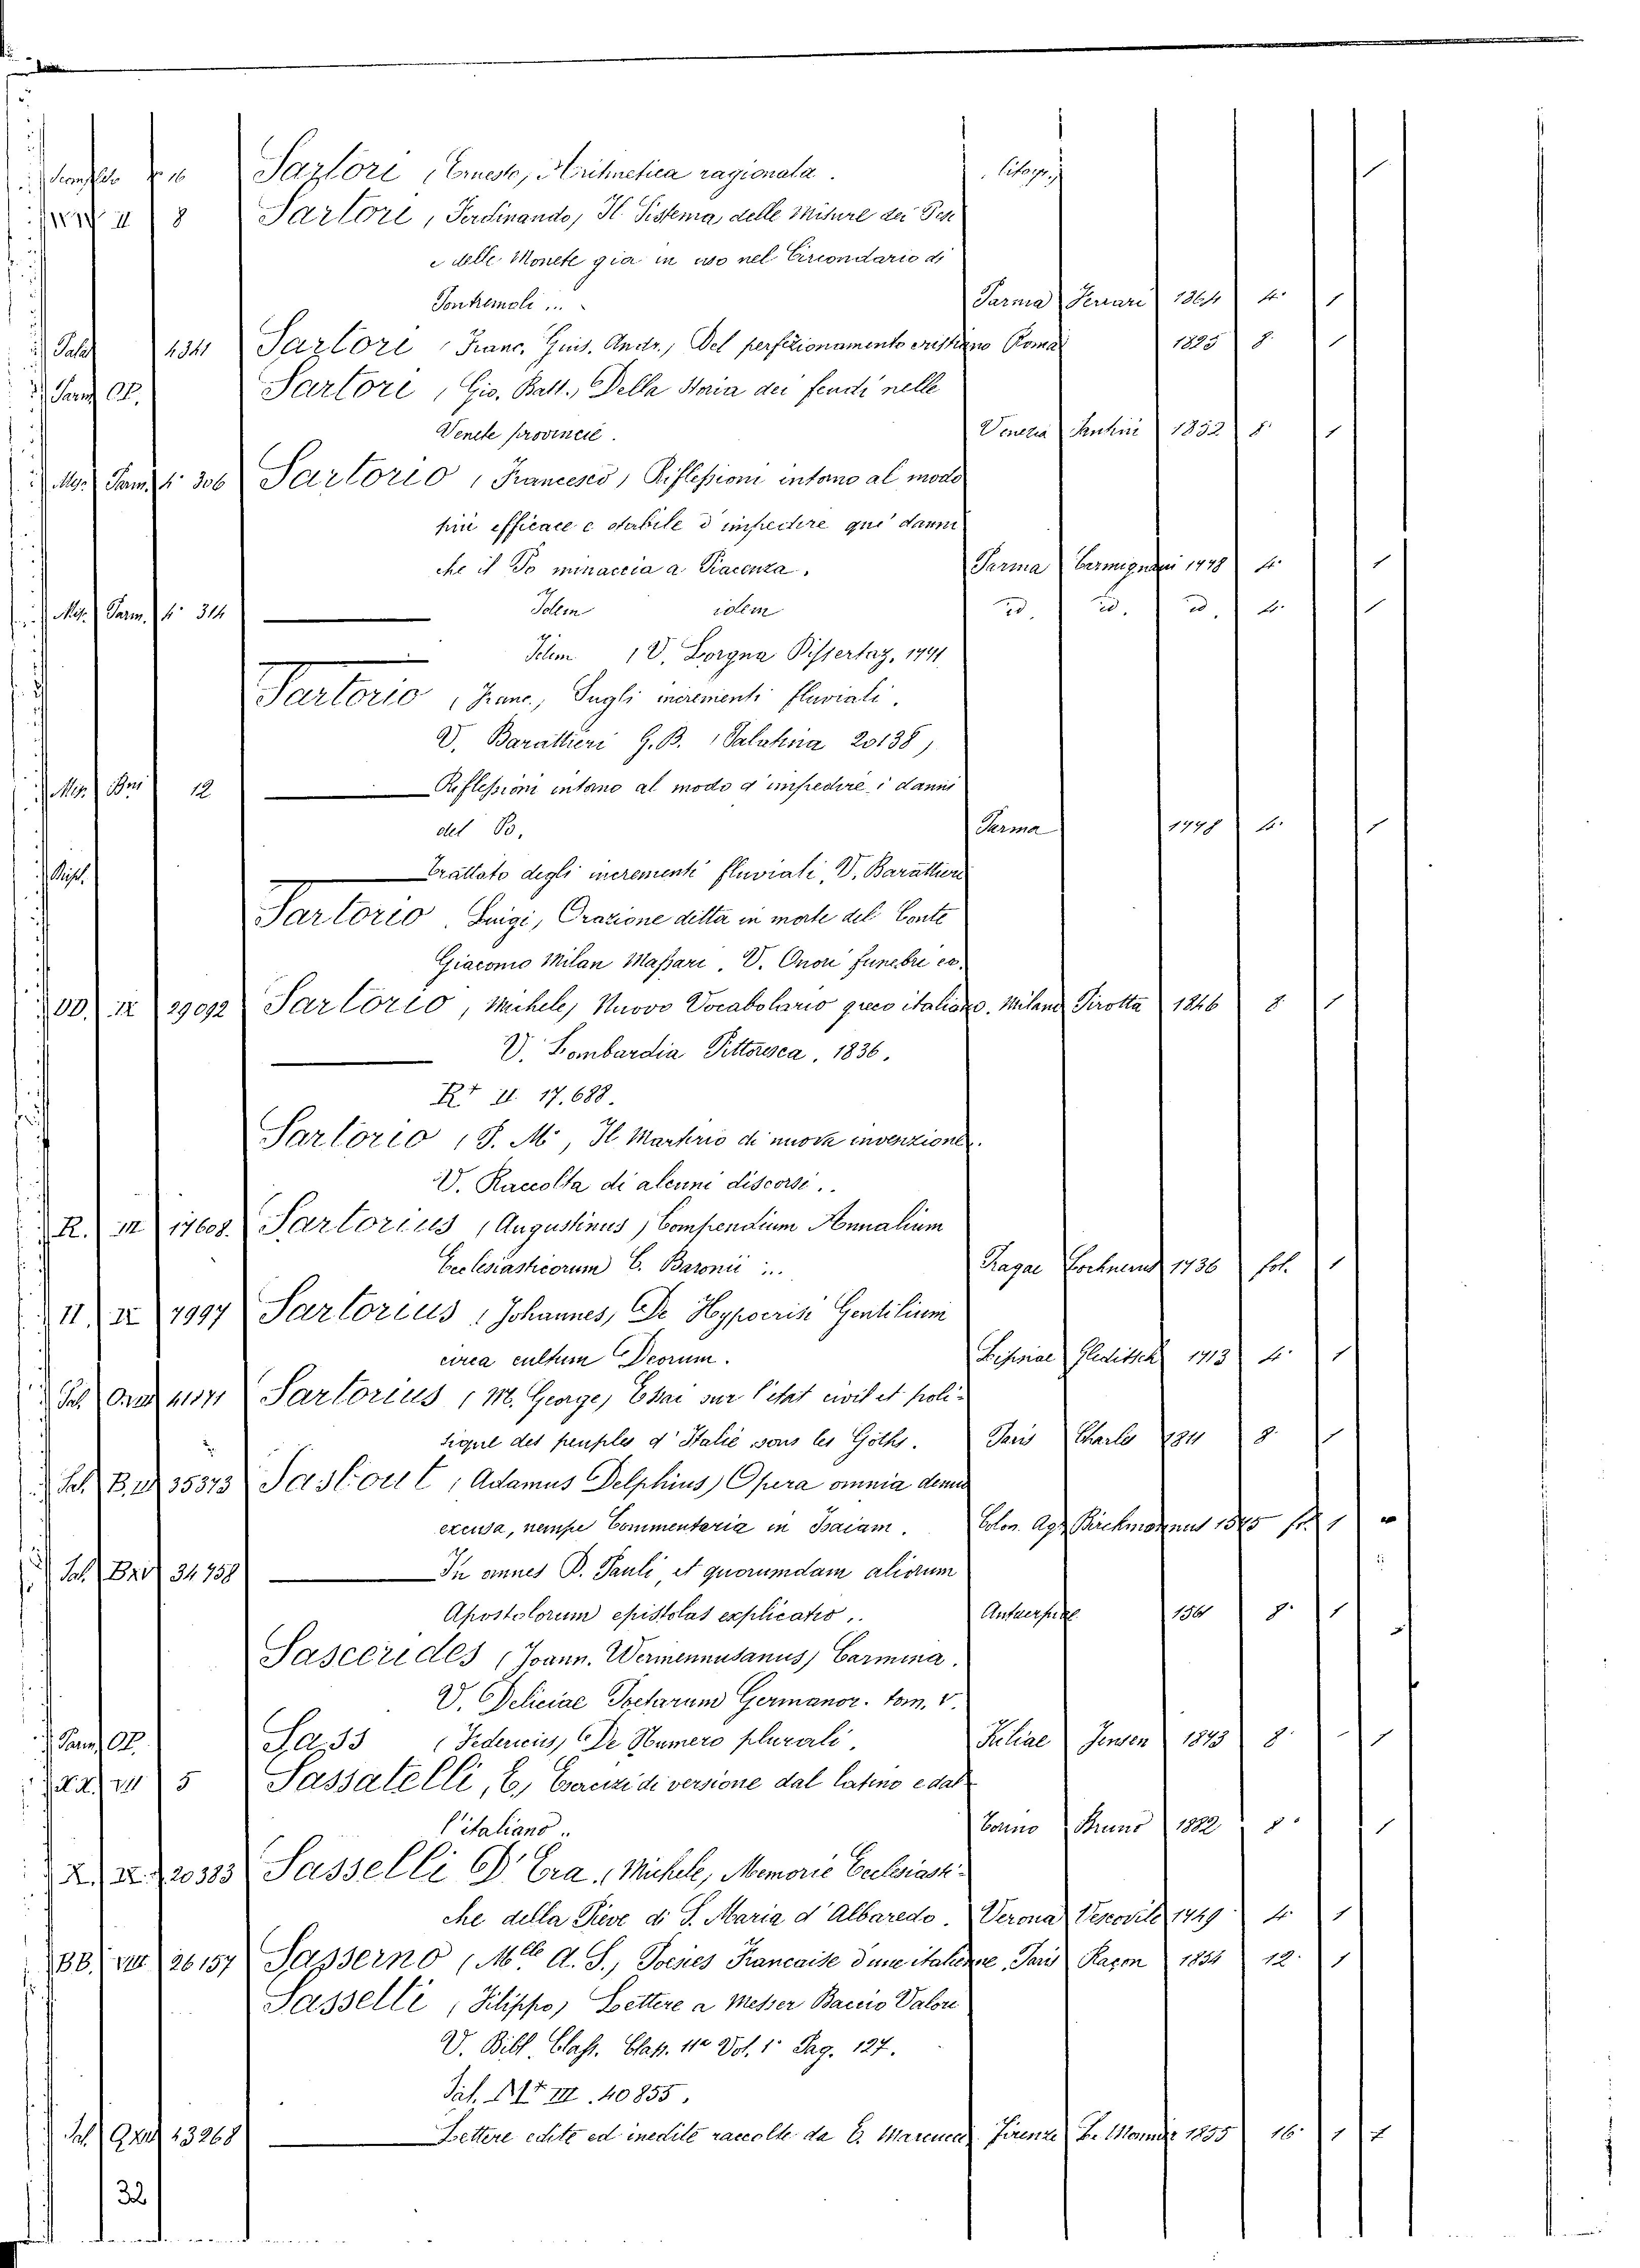 16 Sartori (Ernesto) Arithmetica ragionata. Litogr.
II 8 Sartori, (Ferdinando) Il Sistema delle Misure dei Pesi
e delle Monete già in uso nel Circondario di
Pontremoli ... Parma Ferrari 1864 4° 1
Palat 4341 Sartori (Franc. Gius. Andr.) Del perfezionamento cristiano Roma 1825 8° 1
Parm Sartori, (Gio. Batt.) Della Storia dei feudi nelle
Venete provincie. Venezia Santini 1852 8° 1
Mis. Parm. 4° 306 Sartorio, (Francesco) Riflessioni intorno al modo
più efficace e stabile d'impedire qui danni
che il Po minaccia a Piacenza. Parma Carmignani 1778 4° 1
Mis. Parm. 4° 314 Idem idem id. id. id. 4° 1
Idem (V. Lorgna Dissertaz. 1771
Sartorio (Franc.) Sugli incrementi fluviali.
V. Barattieri G. B. (Palatina 20138)
12 Riflessioni intorno al modo d'impedire i danni
del Po. Parma 1778 4° 1
Trattato degli incrementi fluviali, V. Barattieri
Sartorio. Luigi, Orazione detta in morte del Conte
Giacomo Milan Massari. V. Onori funebri ec.
DD. IX 29092 Sartorio, (Michele) Nuovo Vocabolario greco italiano. Milano Pirotta 1846 8 1
V. Lombardia Pittoresca. 1836.
R+ II 17.688.
Sartorio (S. M.) Il Martirio di nuova invenzione.
V. Raccolta di alcuni discorsi..
R. III 17608. Sartorius (Augustinus) Compendium Annalium
Ecclesiasticorum C. Baronii ... Pragae 1736 fol. 1
II. IX 7997 Sartorius (Johannes) De Hypocrisi Gentilium
circa cultum Deorum. Lipsiae Gleditsch 1713 4° 1
Pal. 41171 Sartorius (M. George) Essai sur l'état civil et poli-
tique des peuples d'Italie sous les Goths. Paris Charles 1811 8° 1
Pal. 35373 Sasbout (Adamus Delphius) Opera omnia demum
excusa, nempe Commentaria in Isaiam. Colon. Agr. Birckmannus 1575 fol. 1
Pal. 34758 In omnes D. Pauli, et quorumdam aliorum
Apostolorum epistolas explicatio.. Antuerpiae 1561 8° 1
Sascerides (Joann. Wermennusanus) Carmina.
V. Deliciae Poetarum Germanor. tom. V.
Parm. Sass (Federicus) De Numero plurali. Kiliae Jensen 1843 8° 1
5 Sassatelli, C., Esercizi di versione dal latino e dal-
l'italiano.. Torino Bruno 1882 8° 1
X. IX. 20383 Sasselli D'Era (Michele) Memorie Ecclesiasti-
che della Pieve di S. Maria d'Albaredo. Verona Vescovile 1749 4° 1
BB. VIII 26157 Sasserno (Mlle A. S.) Poesies Francaise d'une italienne. Paris Raçon 1854 12° 1
Sasselli (Filippo) Lettere a Messer Baccio Valori
V. Bibl. Class. Class. 11a Vol. 1° Pag. 127.
Pal. III. 40855.
Pal. 13268 Lettere edite ed inedite raccolte da E. Marcucci Firenze Le Monnier 1855 16° 1
32